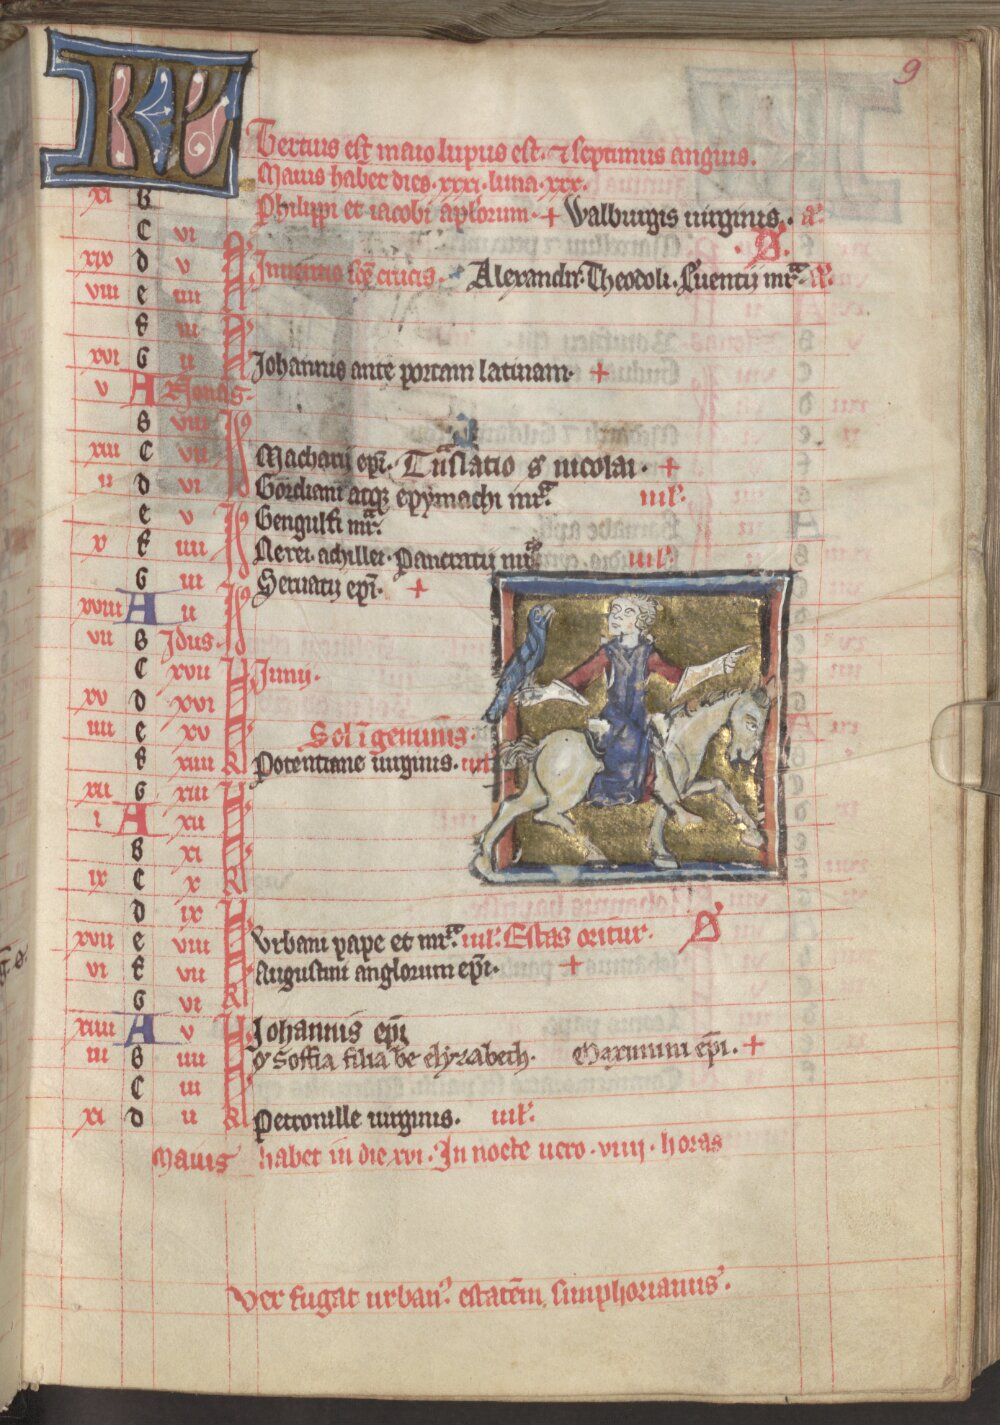 9
KL
Tertius est maio lupus est. ⁊ septimus anguis.
Maius habet dies. xxxi. luna. xxx.
xi b Philippi et iacobi aplorum. + Walburgis uirginis.
C vi
xix d v Inuentio sce crucis. Alexandri. Theodoli. Euentij mr.
viii e iiii
f iii
xvi G ii Johannis ante portam latinam. +
v A Nonas.
b viii Id
xiii C vii Id Macharij epi. Tnslatio s nicolai. +
ii d vi Gordiani atqz epymachi mr. iiil.
e v Id Gengulfi mr.
x f iiii Nerei. achillei. Pancratij mr. iiil.
G iii Seruatij epi. +
xviii A ii Id
vii b Idus.
C xvii Kl Junij.
xv d xvi
iiii e xv Sol i geminis.
f xiiii Kl Potentiane uirginis. iiil
xii G xiii
i A xii
b xi
ix C x Kl
d ix
xvii e viii Vrbani pape et mr. iiil. Estas oritur.
vi f vii Augustini anglorum epi. +
G vi Kl
xiiii A v Johannis epi
iii b iiii Soffia filia be elyzabeth. Maximini epi. +
C iii
xi d ii Kl Petronille uirginis. iiil.
Maius habet in die xvi. In nocte uero. viiij. horas
Ver fugat urban. estatem simphorianus.